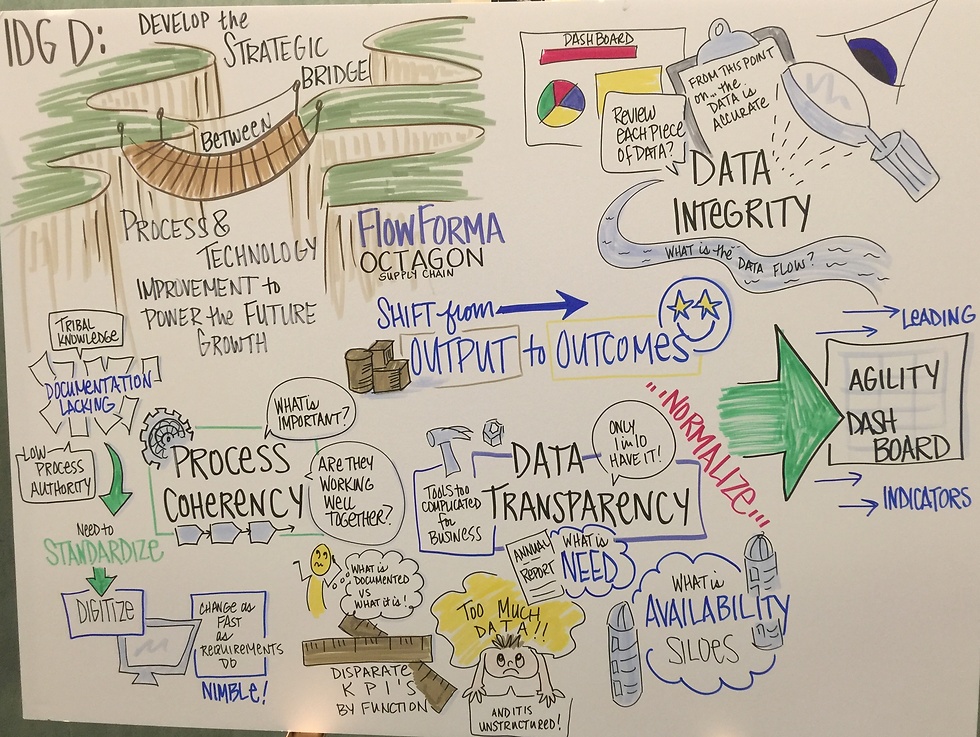 IDG D:
DEVELOP the
STRATEGIC
BRIDGE
BETWEEN
PROCESS &
TECHNOLOGY
IMPROVEMENT to
POWER the FUTURE
GROWTH
FLOWFORMA
OCTAGON
SUPPLY CHAIN
DASHBOARD
REVIEW
EACH PIECE
OF DATA?
FROM THIS POINT
ON... the
DATA is
ACCURATE
DATA
INTEGRITY
WHAT is the DATA FLOW?
SHIFT from
OUTPUT to OUTCOMES
...NORMALIZE...
LEADING
AGILITY
DASH
BOARD
INDICATORS
TRIBAL
KNOWLEDGE
DOCUMENTATION
LACKING
LOW
PROCESS
AUTHORITY
NEED to
STANDARDIZE
DIGITIZE
CHANGE as
FAST
as
REQUIREMENTS
DO
NIMBLE!
WHAT is
IMPORTANT?
PROCESS
COHERENCY
ARE THEY
WORKING
WELL
TOGETHER?
WHAT is
DOCUMENTED
VS
WHAT it is!
DISPARATE
KPI'S
BY FUNCTION
ONLY
1 in 10
HAVE IT!
DATA
TRANSPARENCY
TOOLS too
COMPLICATED
for
BUSINESS
ANNUAL
REPORT
WHAT is
NEED
TOO MUCH
DATA!!!
AND IT is
UNSTRUCTURED!
WHAT is
AVAILABILITY
SILOES